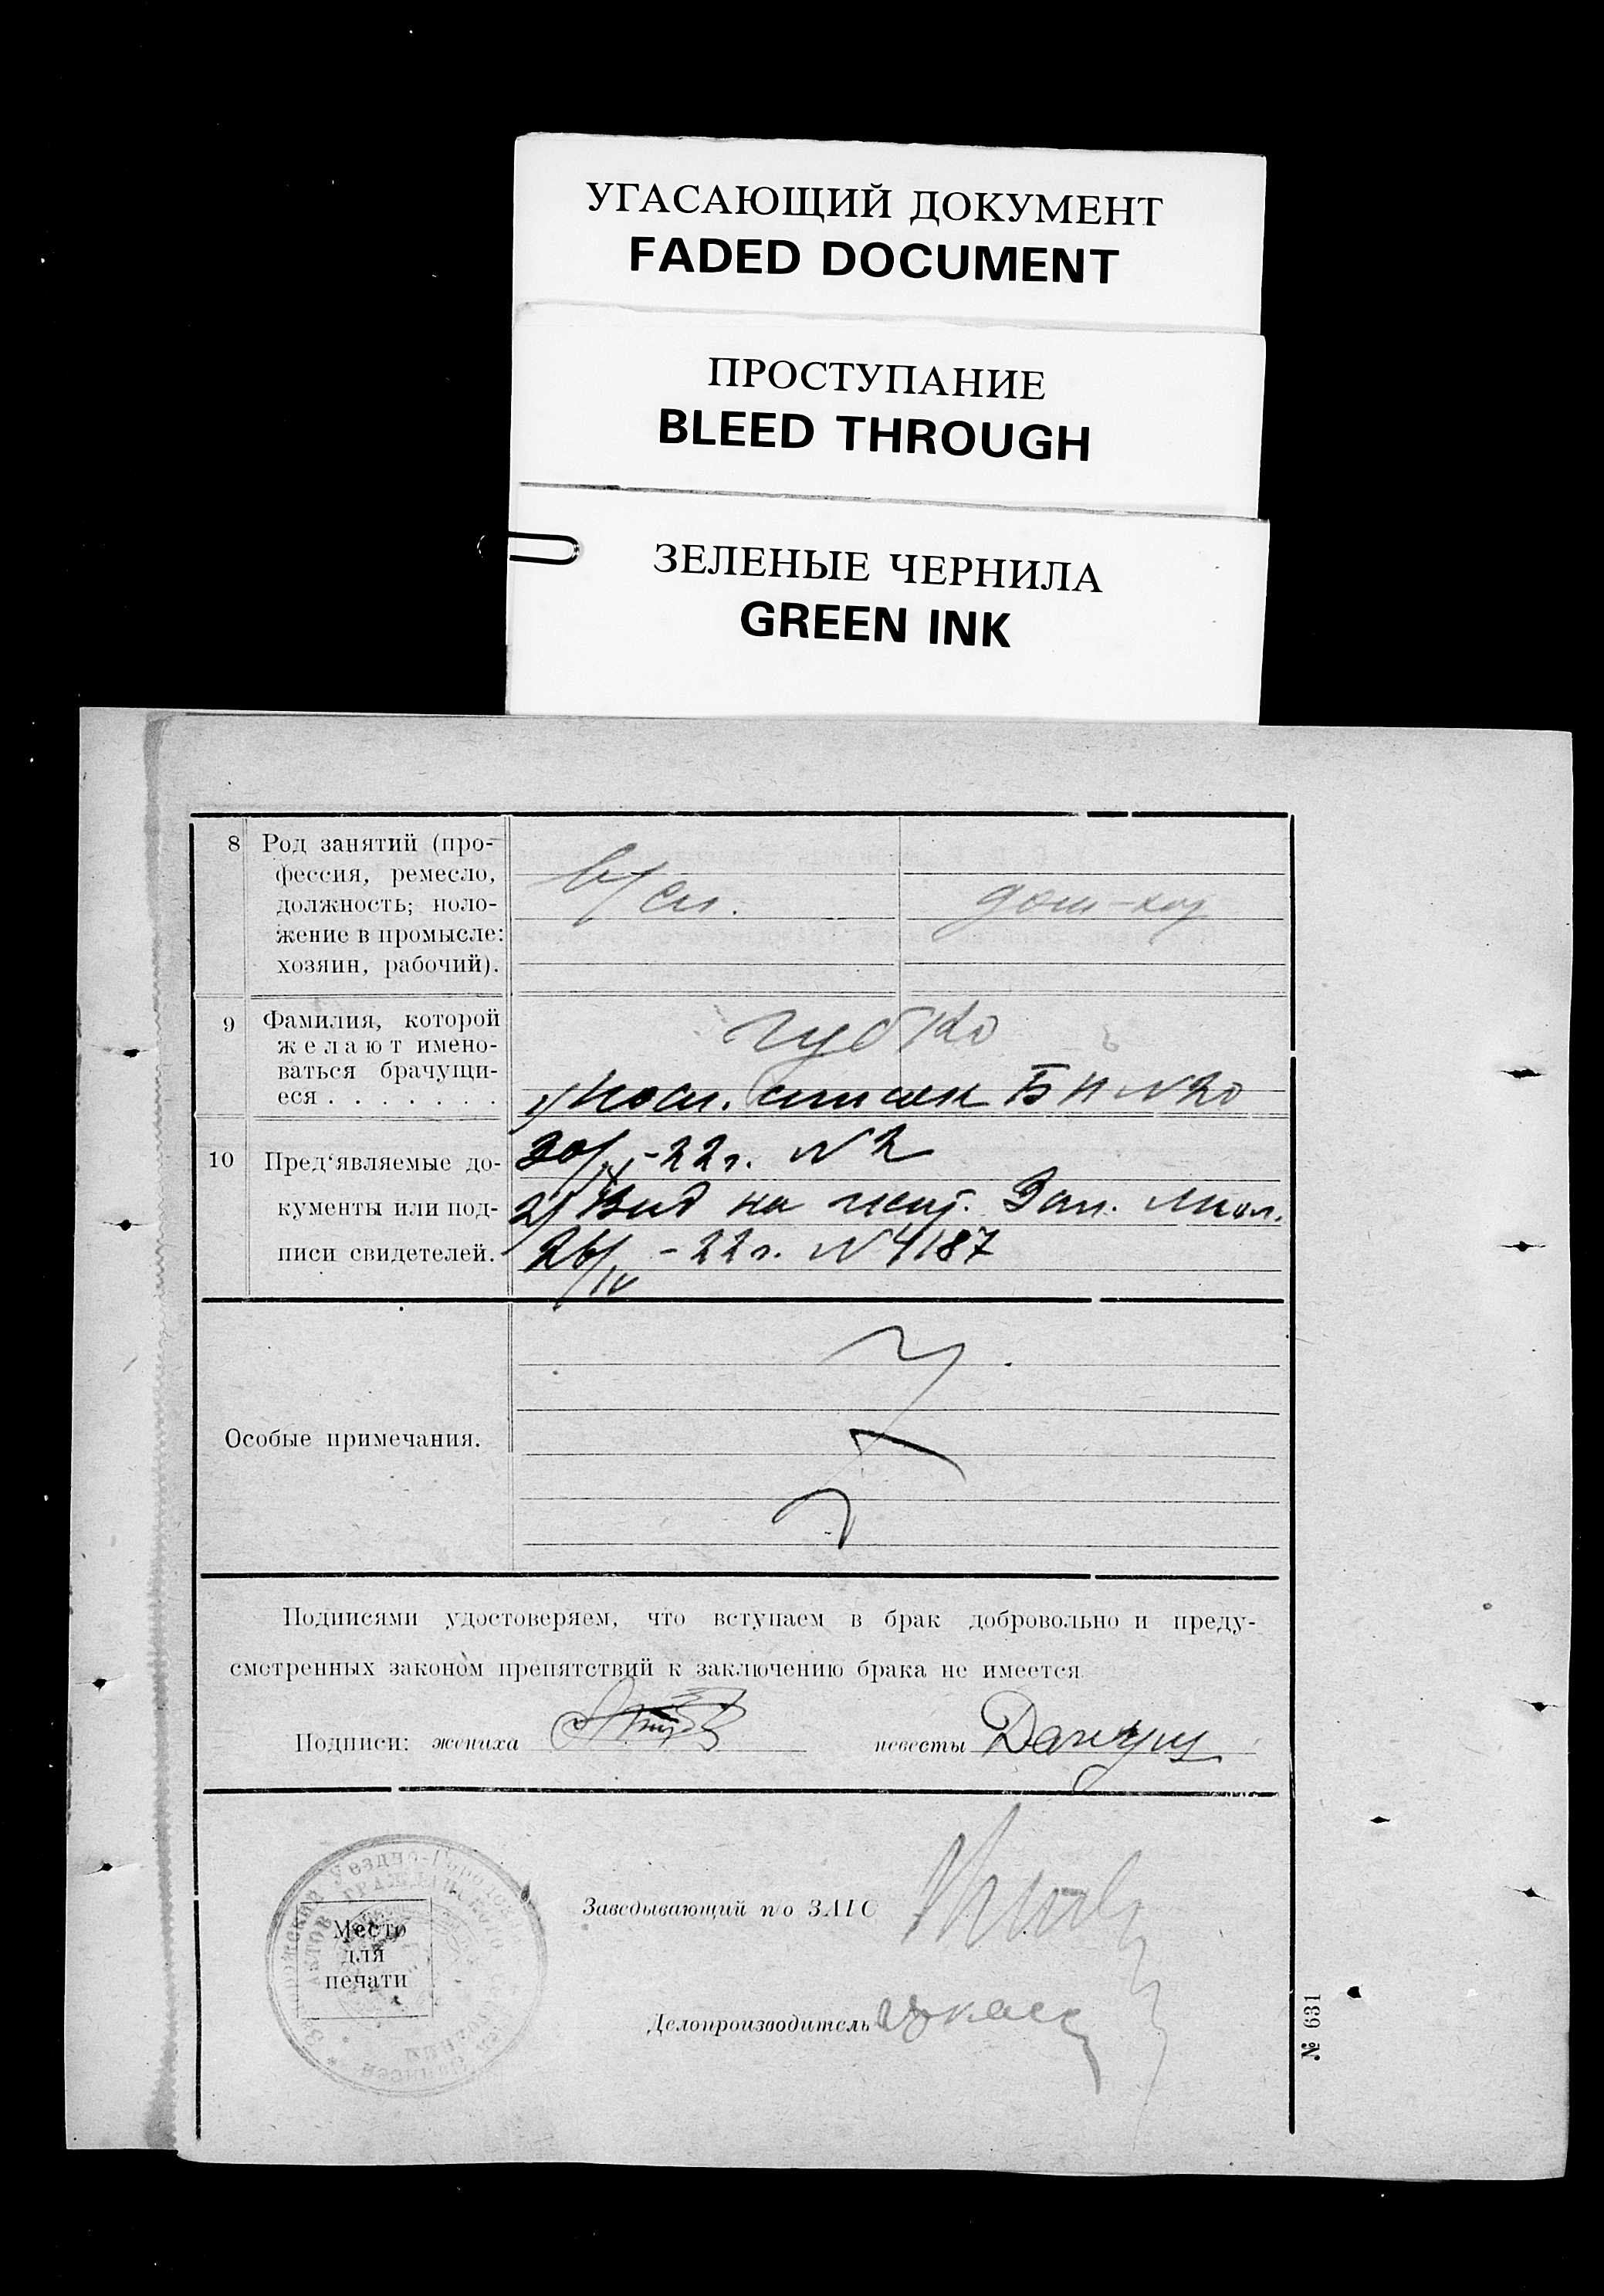 УГАСАЮЩИЙ ДОКУМЕНТ
FADED DOCUMENT
ПРОСТУПАНИЕ
BLEED THROUGH
ЗЕЛЕНЫЕ ЧЕРНИЛА
GREEN INK
8 Род занятий (про-
фессия, ремесло,
должность; поло-
жение в промысле:
хозяин, рабочий).
в/сл.
дом-хоз
9 Фамилия, которой
желают имено-
ваться брачущи-
еся . . . . . . .
Губко
1) список БН N 20
10 Пред‘являемые до-
кументы или под-
писи свидетелей.
-22 г. N 2
2) Вид на жит. Зап.
26/IV -22 г. N 4187
Особые примечания.
Подписями удостоверяем, что вступаем в брак добровольно и преду-
смотренных законом препятствий к заключению брака не имеется
Подписи: жениха
невесты
Место
для
печати
Заведывающий п/о ЗАГС
Делопроизводитель
№ 631